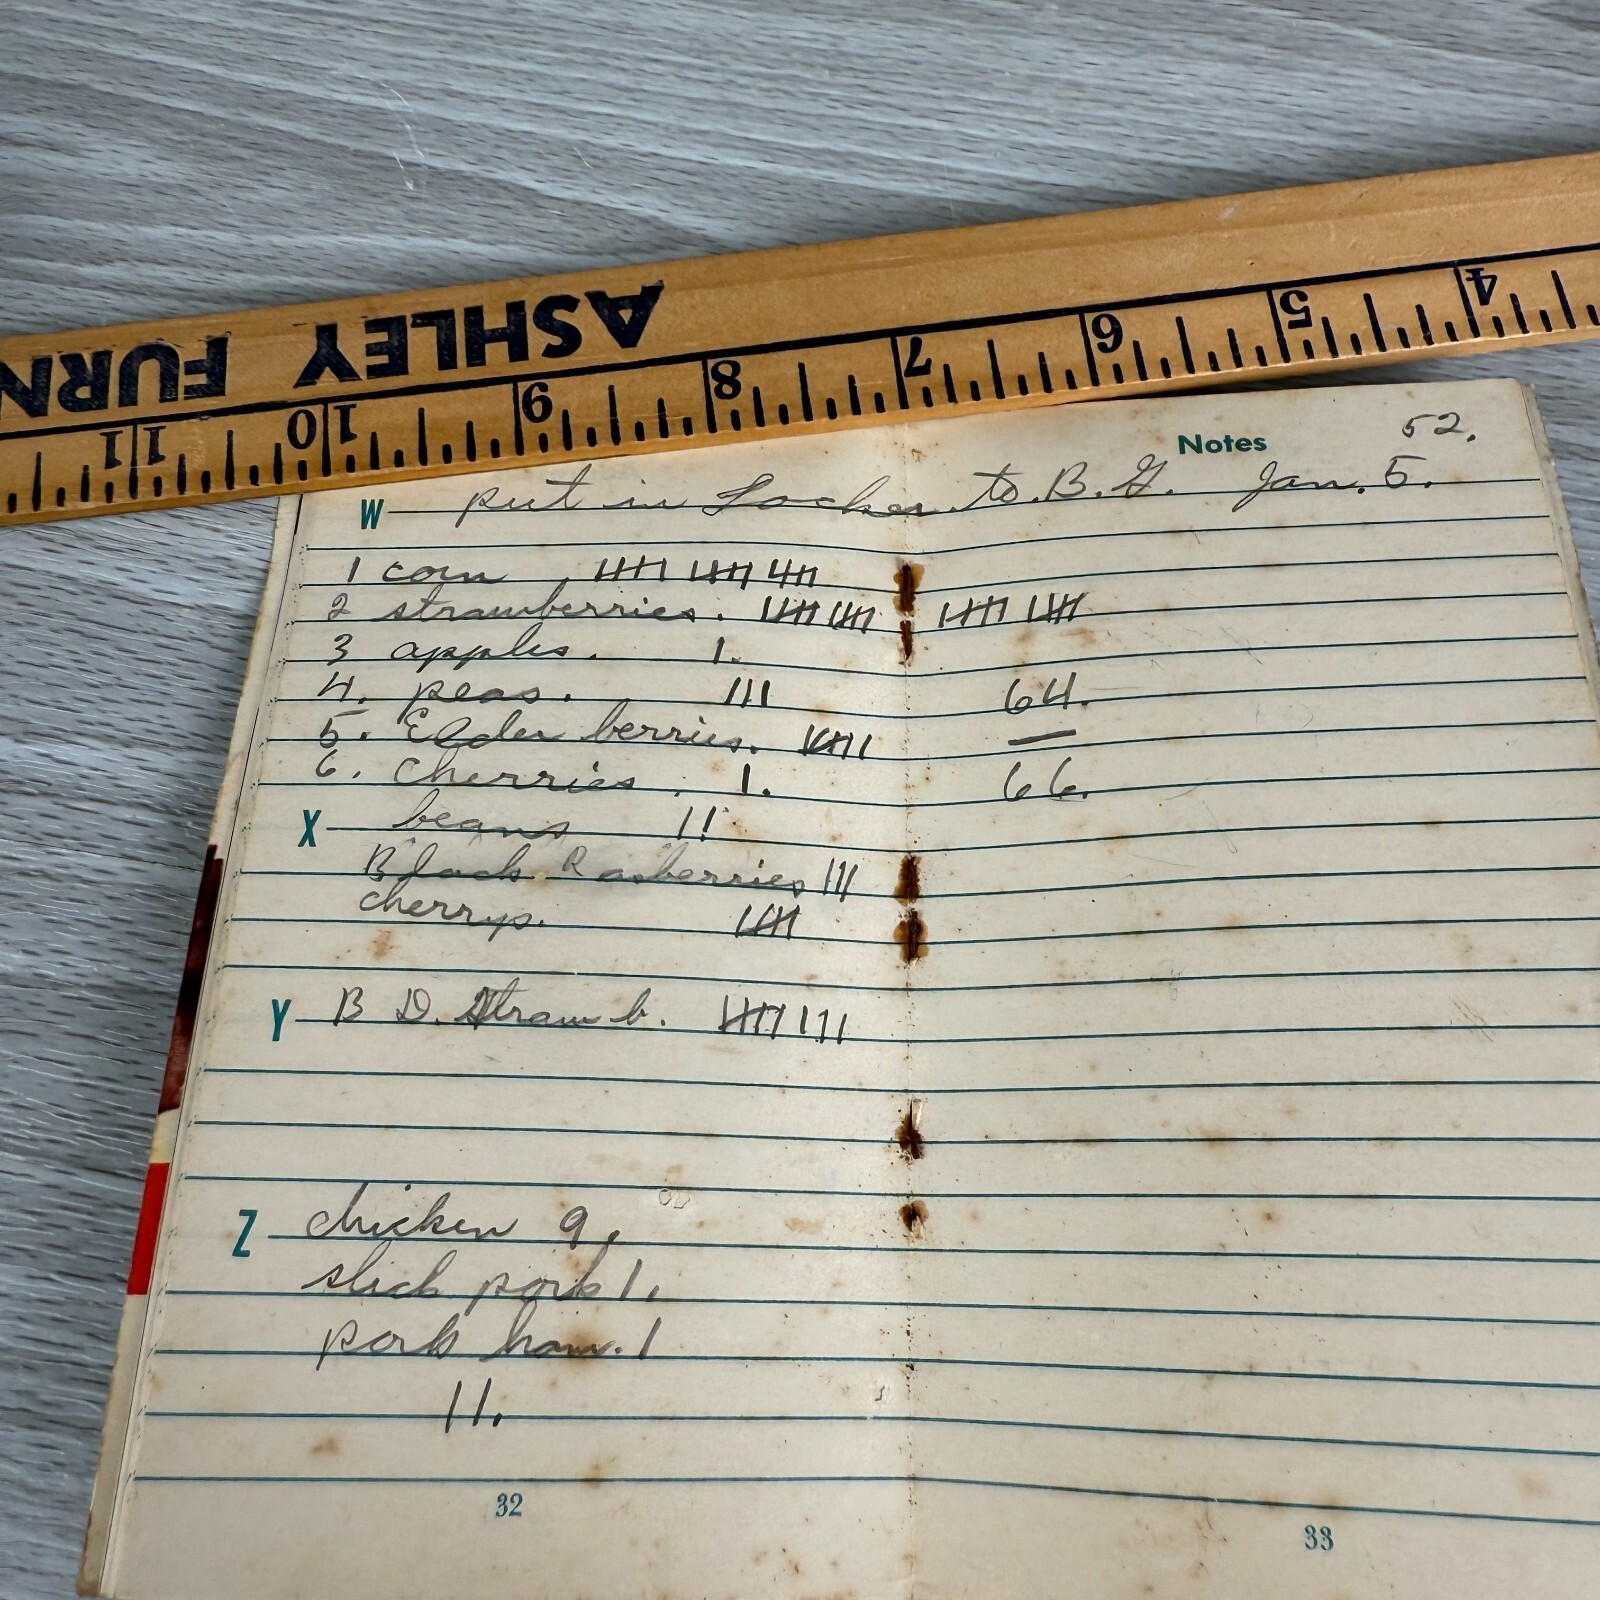 ASHLEY FURN
11 10 9 8 7 6 5 4
Notes 52.
W put in Locker to B. G. Jan. 5.
1 corn 卌 卌 卌
2 strawberries. 卌 卌 卌 卌
3 apples. 1.
4. peas. 111 64.
5. Elder berries. 卌 1
6. cherries. 1. 66.
X beans 11
Black Rasberries 111
cherrys. 卌
Y B D. Straw b. 卌 111
Z chicken 9.
slick pork 1.
pork ham. 1
11.
32 33